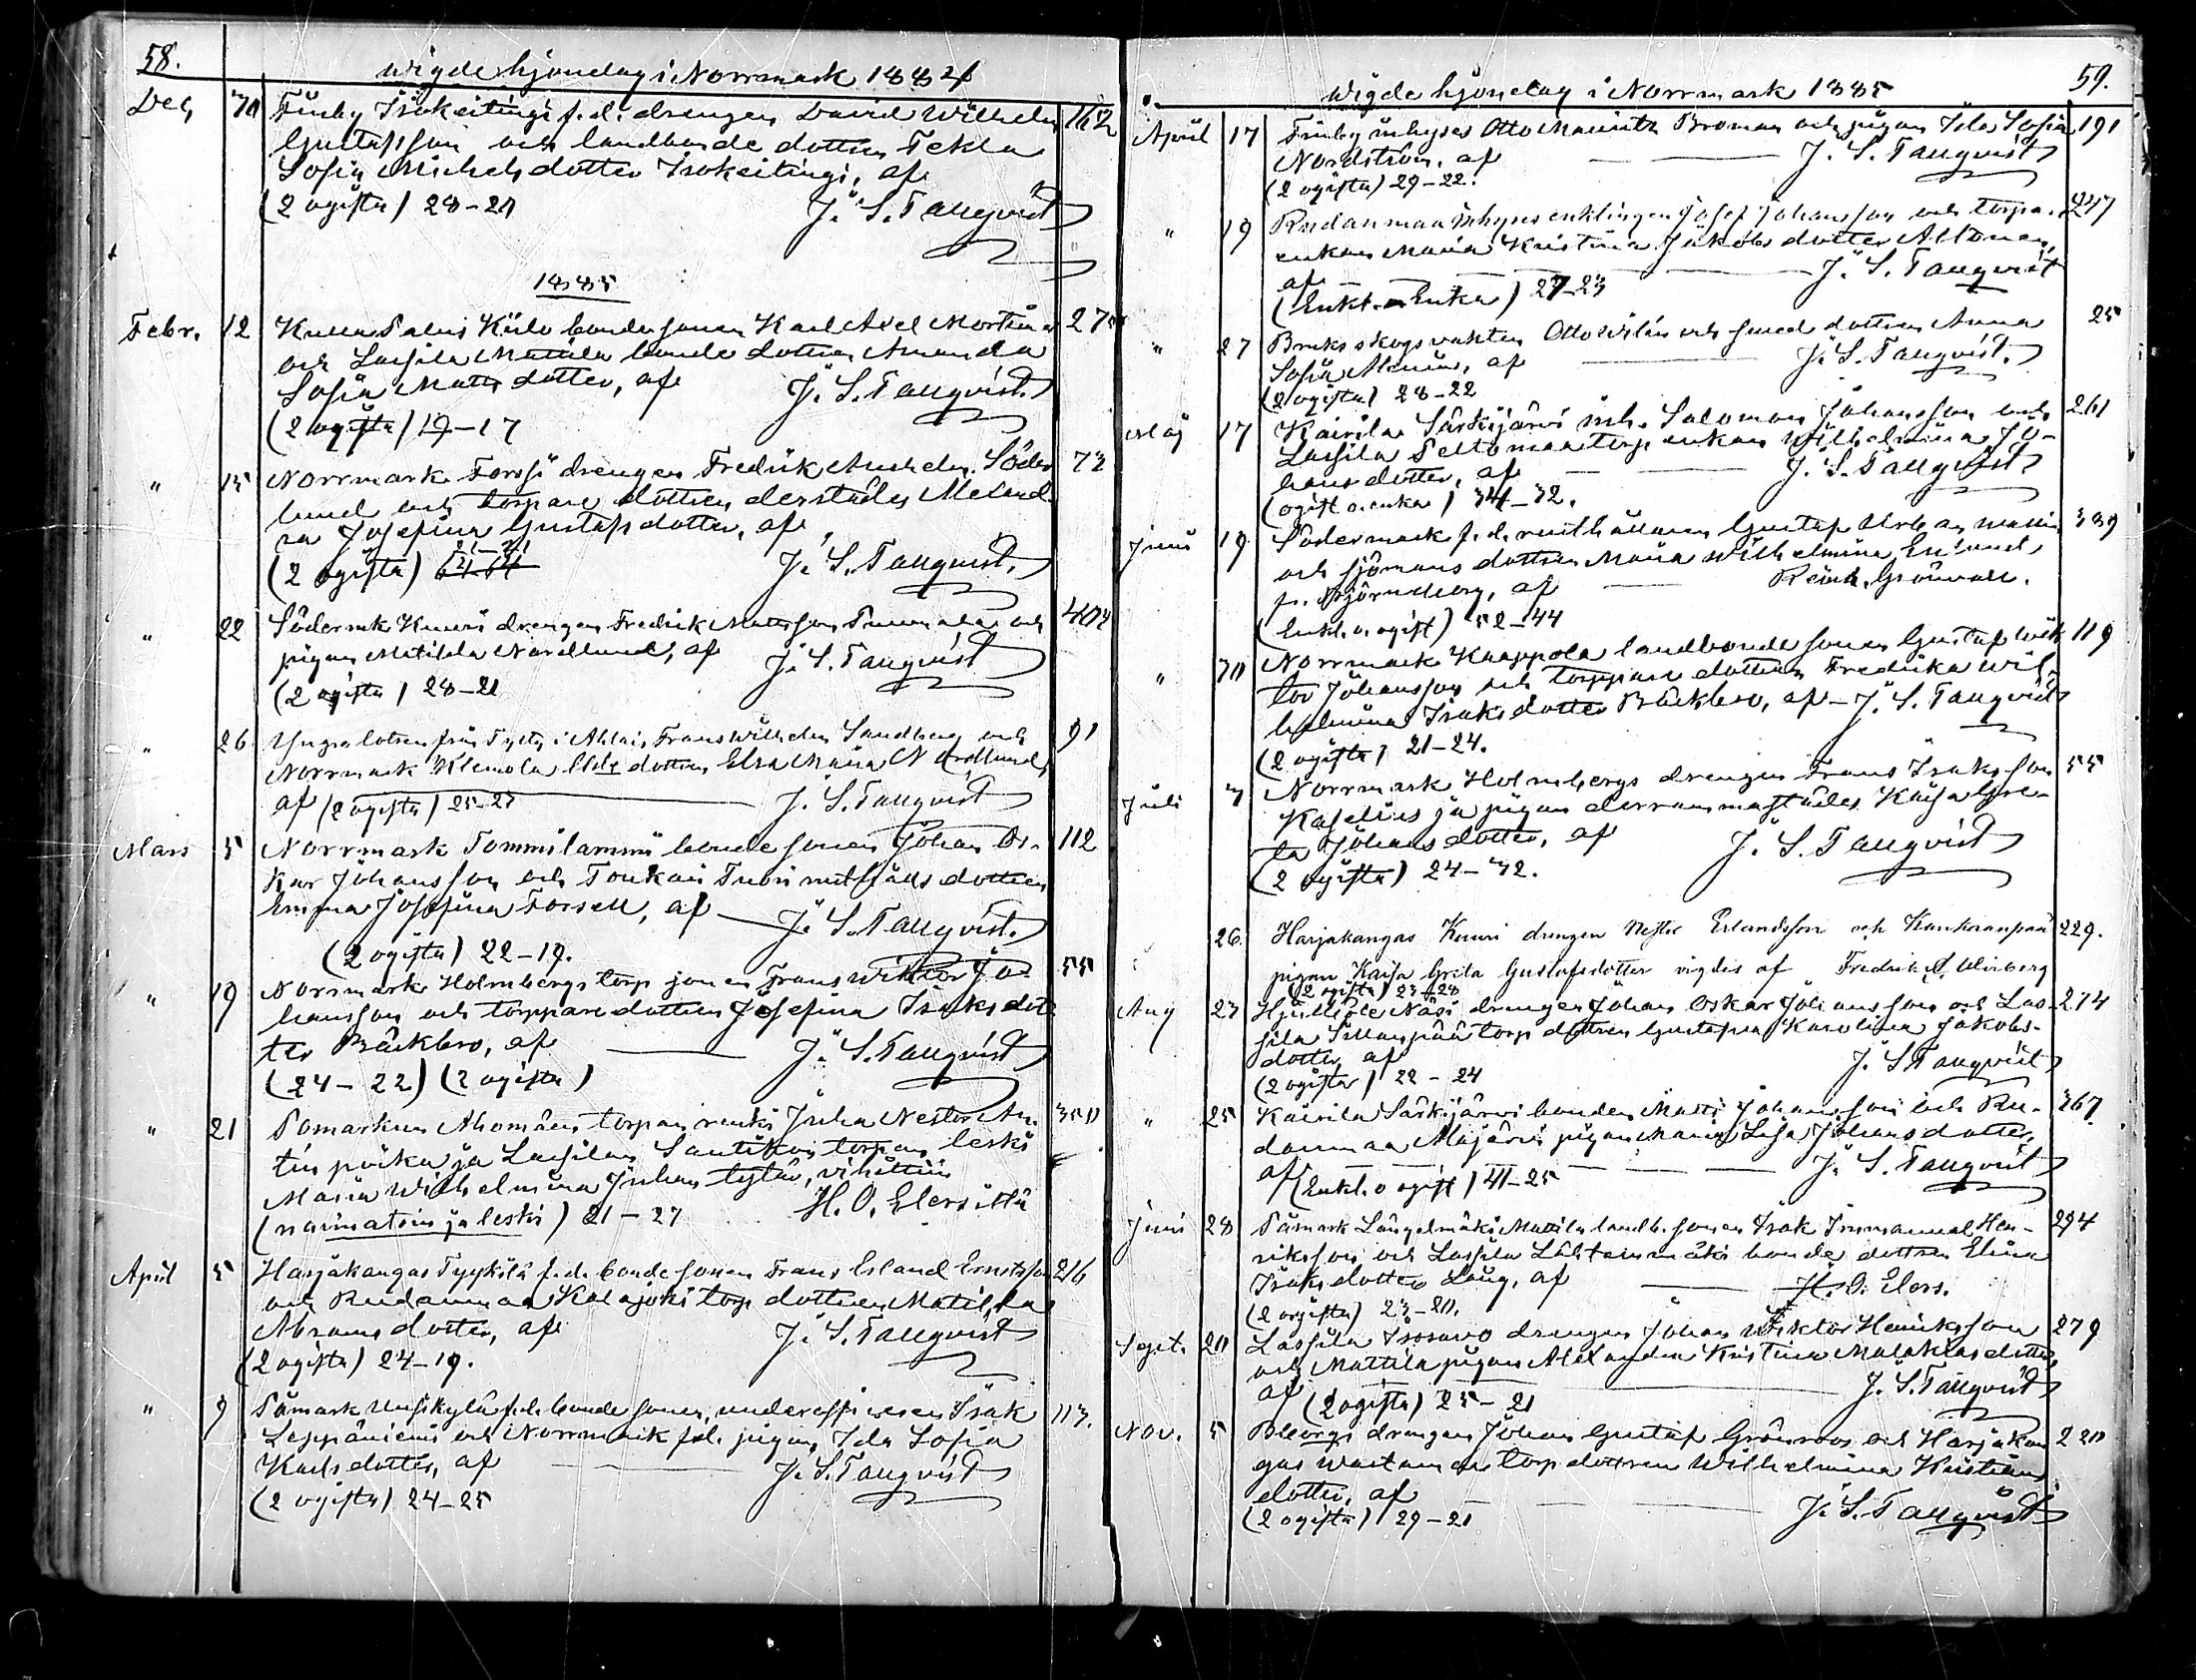 58.
wigde hjonelag i Norrmark 1884
Dec. 30 Finby Isokeitingi f.d. drengen David Wilhelm 162
Gustafsson och landbonde dottren Tekla
Sofia Michelsdotter Isokeitingi, af
(2 ogifta) 28-20 J. S. Tallqvist
1885
Febr. 12 bonde sonen Karl Axel Mortin 275
och Lassila Mattila bonde dottren Amanda
Sofia Mattsdotter, af J. S. Tallqvist.
(2 ogifta) 19-17
" 15 Norrmark Forssi drengen Fredrik Anshelm Söder 73
lund och torpare dottren derstädes Meland
ra Josefina Gustafsdotter, af
(2 ogifta) 21-21 J. S. Tallqvist.
" 22 Södermk Knuuri drengen Fredrik Mattsson och 404
pigan Matilda Nordlund, af J. S. Tallqvist
(2 ogifta) 28-21
" 26 Yngre lotsen från i Ahlais, Frans Wilhelm Sandberg och 91
Norrmark Klemola dottren Elsa Maria Nordlund,
af (2 ogifta) 25-23 J. S. Tallqvist
Mars 5 Norrmark Tommilammi bonde sonen Johan Os- 112
kar Johansson och Toukari Tuori dottren
Emma Josefina Forsell, af J. S. Tallqvist.
(2 ogifta) 22-19.
" 19 Norrmark Holmbergs torp sonen Frans Wiktor Jo- 55
hansson och torppare dottren Josefina Isaksdot
ter Bäckbro, af J. S. Tallqvist
(24-22) (2 ogifta)
" 21 Pomarkun Ahomäen torpan renki Juha Nestor An 350
tin poika, ja Lassilan Santikon torpan leski
Maria Wilhelmina Juhan tytär, vihittiin
(naimatoin ja leski) 21-27 H. O. Elersiltä
April 5 Harjakangas Tyykilä f.d. bonde sonen Frans Erland Ernstsson 216
och Rudanmaa Kalajoki torp dottren Matilda
Abramsdotter, af J. S. Tallqvist
(2 ogifta) 24-19.
" 9 Påmark Uusikylä f.d. bonde sonen, underofficeren Isak 113.
Leppäniemi och Norrmark f.d. pigan Ida Sofia
Karlsdotter, af J. S. Tallqvist
(2 ogifta) 24-25
wigde hjonelag i Norrmark 1885 59.
April 17 Finby inhyses Otto Mauritz Broman och pigan Ida Sofia 191
Nordström, af J. S. Tallqvist
(2 ogifta) 29-22.
" 19 Rudanmaa Inhyses enklingen Josef Johansson och torpa- 247
enkan Maria Kristina Jakobsdotter Altonen,
af J. S. Tallqvist
(Enkl. o Enka) 27-23
" 27 Bruks skogsvakten Otto Wilén och smed dottren Anna 25
Sofia Alenius, af J. S. Tallqvist.
(2 ogifta) 28-22
Maj 17 Kairila Särkijärvi inh. Salomon Johansson och 261
Lassila Peltomaa torp enkan Wilhelmina Jo-
hansdotter, af J. S. Tallqvist
(ogift o. enka) 34-32.
Juni 19 Södermark f.d. Gustaf Urban 389
och sjömans dottren Maria Wilhelmina Enlund,
fr. Björneborg, af Reinh. Grönvall.
(Enkl. o. ogift) 52-44
" 30 Norrmark Kaappola landbonde sonen Gustaf Wik 119
tor Johansson och torppare dottren Fredrika Wil-
helmina Isaksdotter Bäckbro, af J. S. Tallqvist
(2 ogifta) 21-24.
Juli 3 Norrmark Holmbergs drengen Frans Isaksson 55
Kaselius ja pigan derrammastädes Kaisa Gre-
ta Johansdotter, af J. S. Tallqvist
(2 ogifta) 24-32.
26. Harjakangas Knuri drengen Nestor Erlandsson och Kankaanpää 229.
pigan Kaisa Greta Gustafsdotter vigdes af Fredrik A. Winberg
(2 ogifta) 23-28
Aug 23 Hjulböle Näsi drengen Johan Oskar Johansson och Las- 274
sila Sillanpää torp dottren Gustafva Karolina Jakobs-
dotter, af J. S. Tallqvist
(2 ogifta) 22-24
" 25 Kairila Särkijärvi bonden Matts Johansson och Ru- 267.
danmaa Majärvi pigan Maria Lisa Johansdotter,
af (Enkl. o ogift) 41-25 J. S. Tallqvist
Juni 28 Påmark Längelmäki Mattila landb. sonen Isak Immanuel Hen- 294
riksson och Lassila Lähteinmäki bonde dottren Elina
Isaksdotter Lång, af H. O. Elers.
(2 ogifta) 23-20.
Sept. 20 Lassila Isosavo drengen Johan Wiktor Henriksson 279
och Mattila pigan Alexandra Kristina Malakiasdotter,
af (2 ogifta) 25-21 J. S. Tallqvist
Nov. 5 drengen Johan Gustaf Grönroos och Harjakan 220
gas torp dottren Wilhelmina Kristians
dotter, af
(2 ogifta) 29-21 J. S. Tallqvist